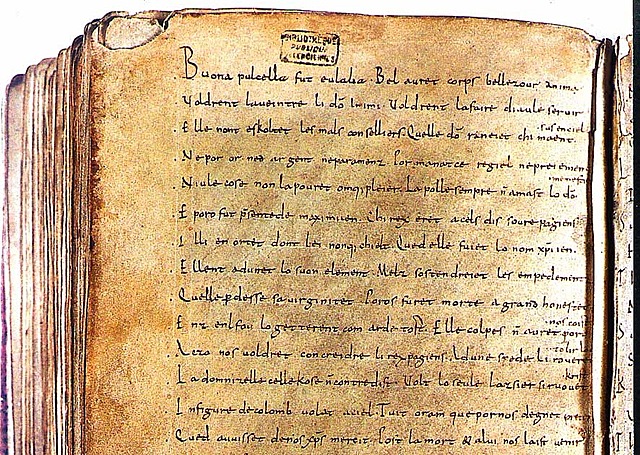 BIBLIOTHEQUE
PUBLIQUE
VALENCIENNES
Buona pulcella fut eulalia. Bel auret corps bellezour anima
Voldrent laveintre li dō inimi. Voldrent lafaire diaule servir
Elle nont eskoltet les mals conselliers. Quelle dō raneiet chi maent
sus en ciel
Ne por or ned argent ne paramenz. Por manatce regiel ne preiement
niule cose non la pouret omqi pleier. La polle sempre n̄ amast lo dō
menestier
E poro fut p̄sentede maximiien. Chi rex eret a cels dis soure pagiens
Illi en ortet dont lei nonqi chielt. Qued elle fuiet lo nom xp̄iien.
Ellent adunet lo suon element. Melz sostendreiet les empedementz
Quelle p̄desse sa virginitet. Poros furet morte a grand honestet
Enz enl fou lo getterent com arde tost. Elle colpes n̄ auret por
nos coist
Aezo nos voldret concreidre li rex pagiens. Ad une spede li roveret
tolir lo
La domnizelle celle kose n̄ contredist. Volt lo seule lazsier si ruovet
krist
In figure de colomb volat a ciel. Tuit oram que por nos degnet preier
Qued auuisset de nos xp̄s mercit. Post la mort & a lui nos laist venir